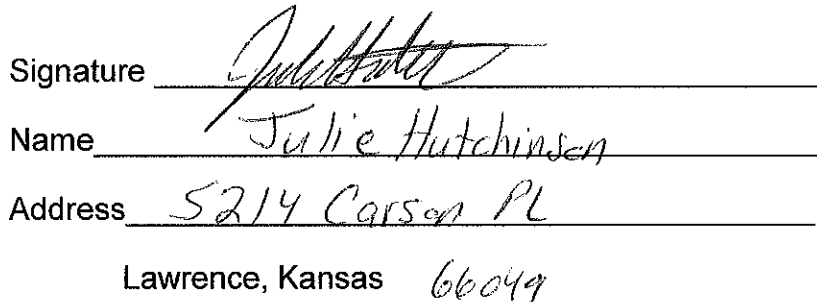 Signature
Name Julie Hutchinson
Address 5214 Carson PL
Lawrence, Kansas 66049